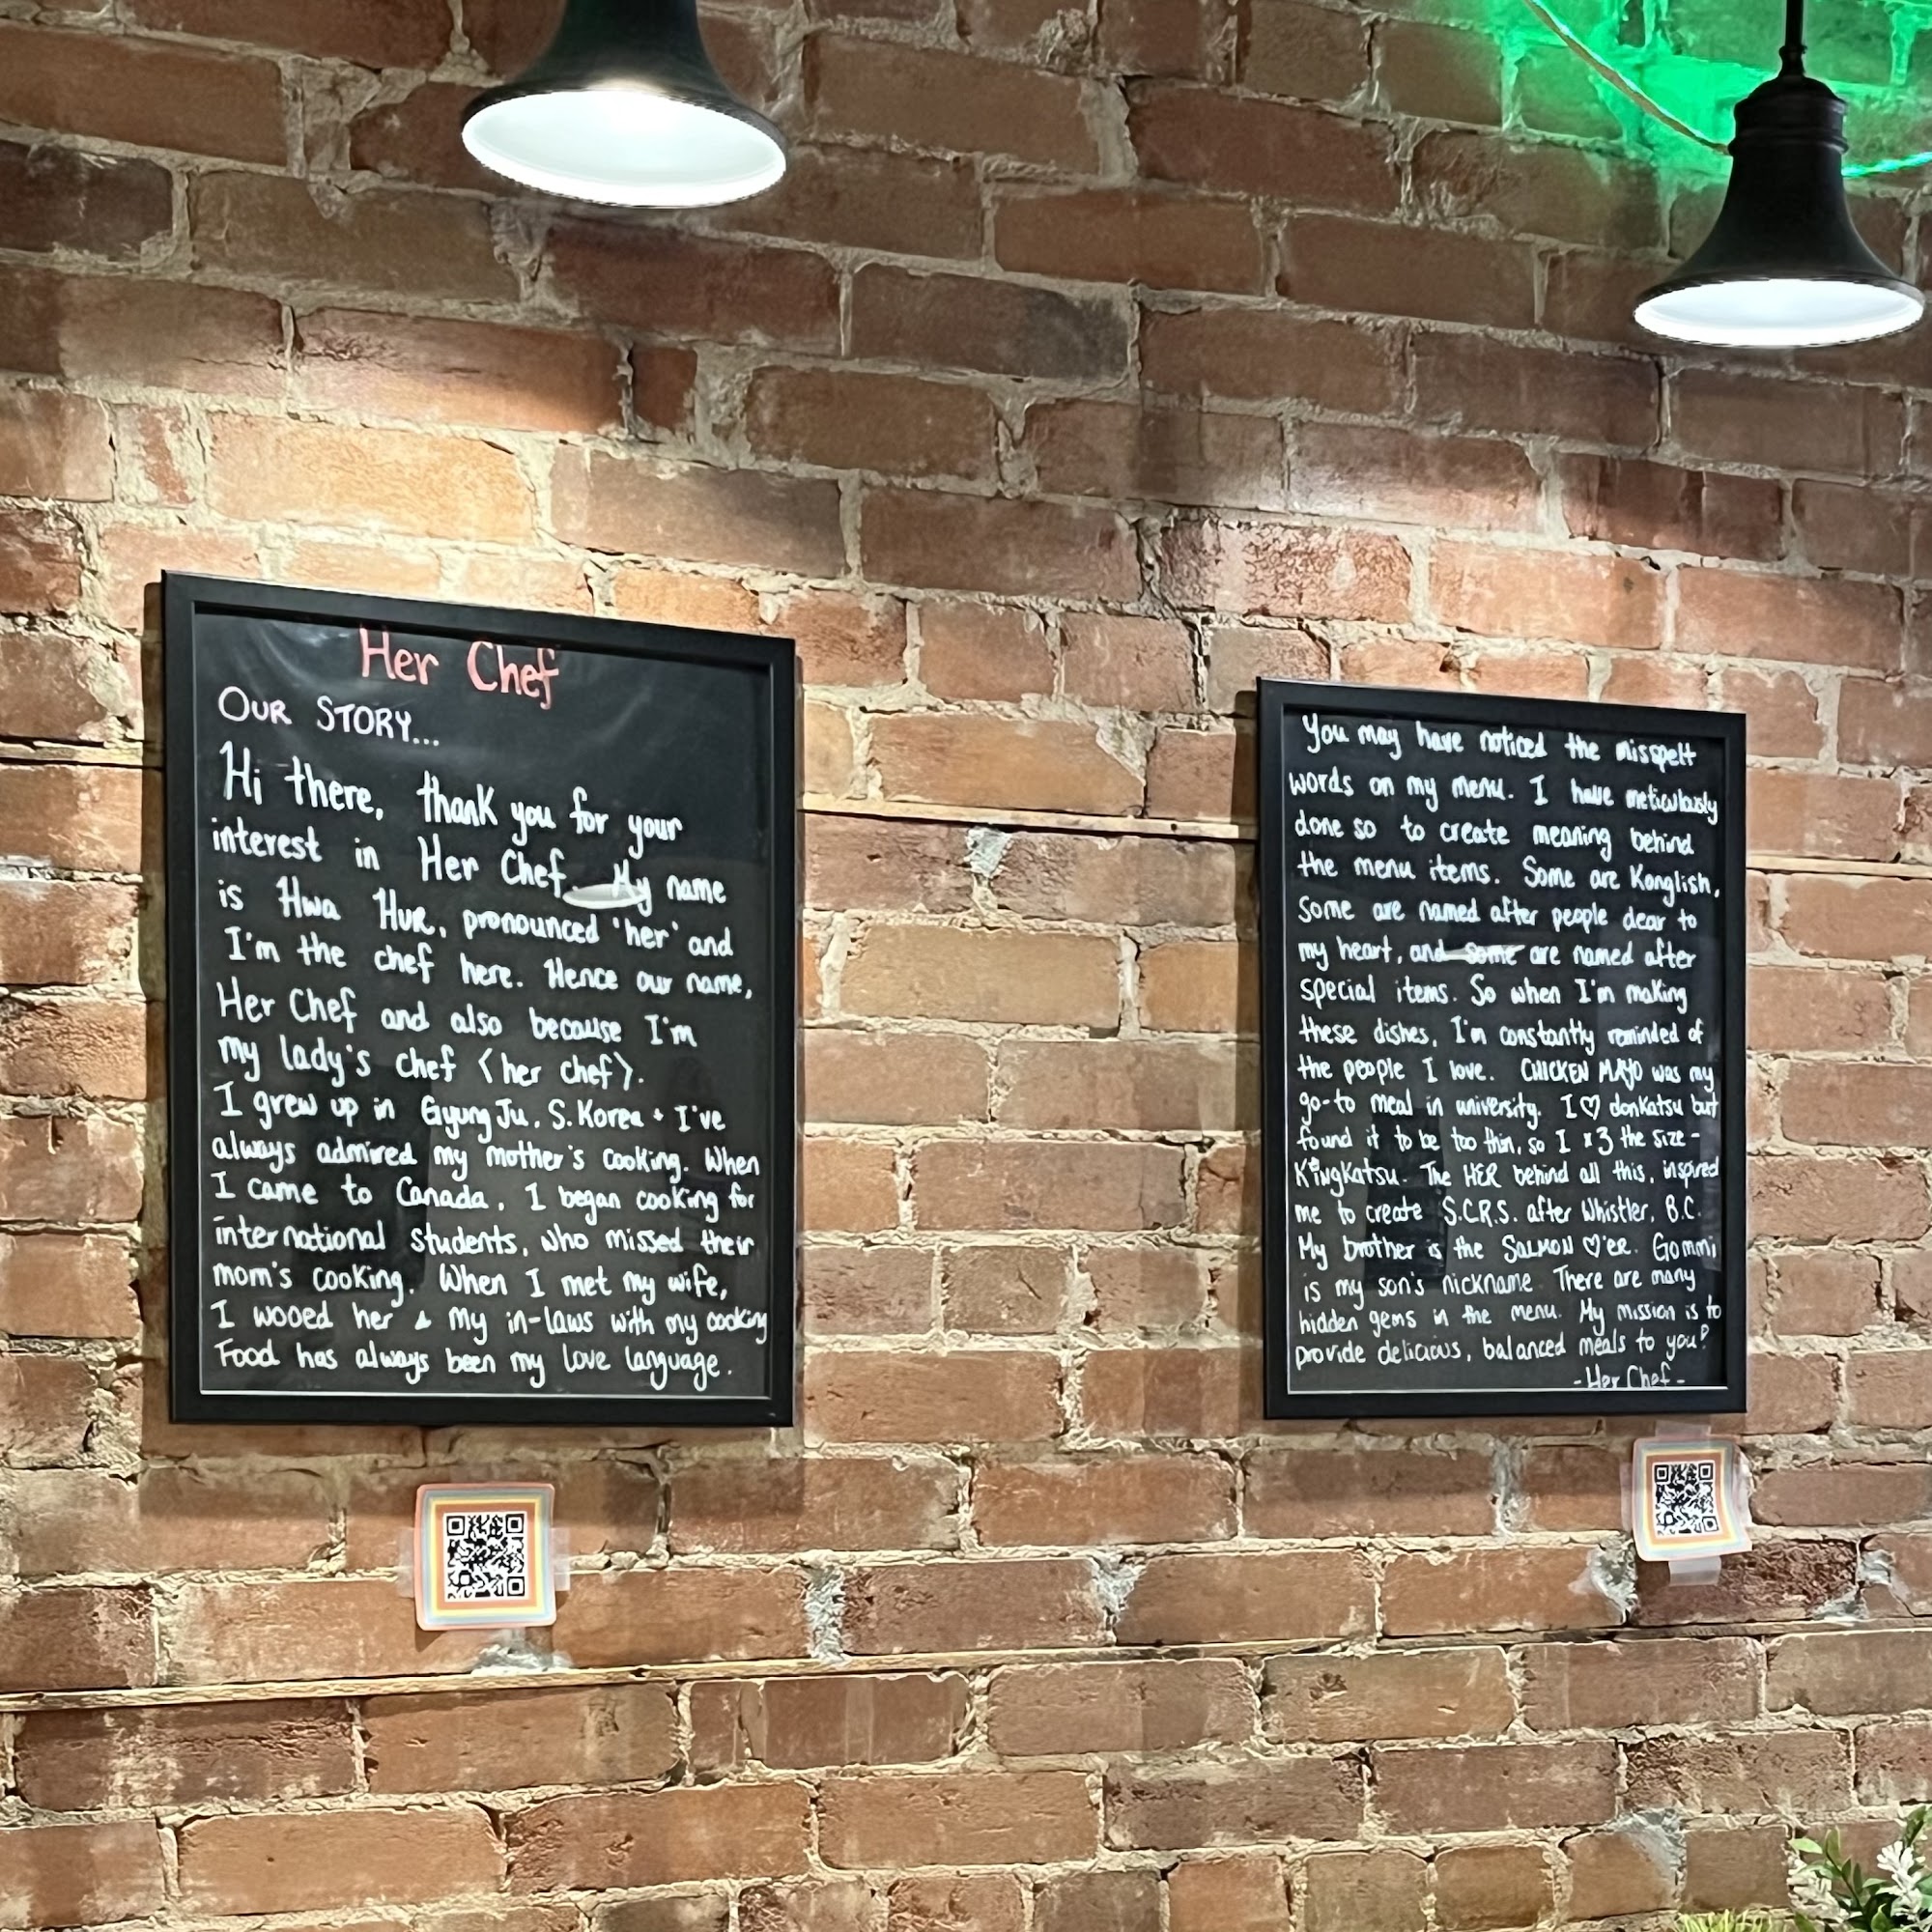 Her Chef
OUR STORY...
Hi there, thank you for your
interest in Her Chef. My name
is Hwa Hur, pronounced 'her' and
I'm the chef here. Hence our name,
Her Chef and also because I'm
my lady's chef (her chef).
I grew up in GyungJu, S.Korea + I've
always admired my mother's cooking. When
I came to Canada, I began cooking for
international students, who missed their
mom's cooking. When I met my wife,
I wooed her & my in-laws with my cooking
Food has always been my love language.
You may have noticed the misspelt
words on my menu. I have meticulously
done so to create meaning behind
the menu items. Some are Konglish,
some are named after people dear to
my heart, and some are named after
special items. So when I'm making
these dishes, I'm constantly reminded of
the people I love. CHICKEN MAYO was my
go-to meal in university. I ♡ donkatsu but
found it to be too thin, so I x3 the size -
KingKatsu. The HER behind all this, inspired
me to create S.C.R.S. after Whistler, B.C.
My brother is the SALMON ♡'ER. Gommi
is my son's nickname. There are many
hidden gems in the menu. My mission is to
provide delicious, balanced meals to you!
- Her Chef -